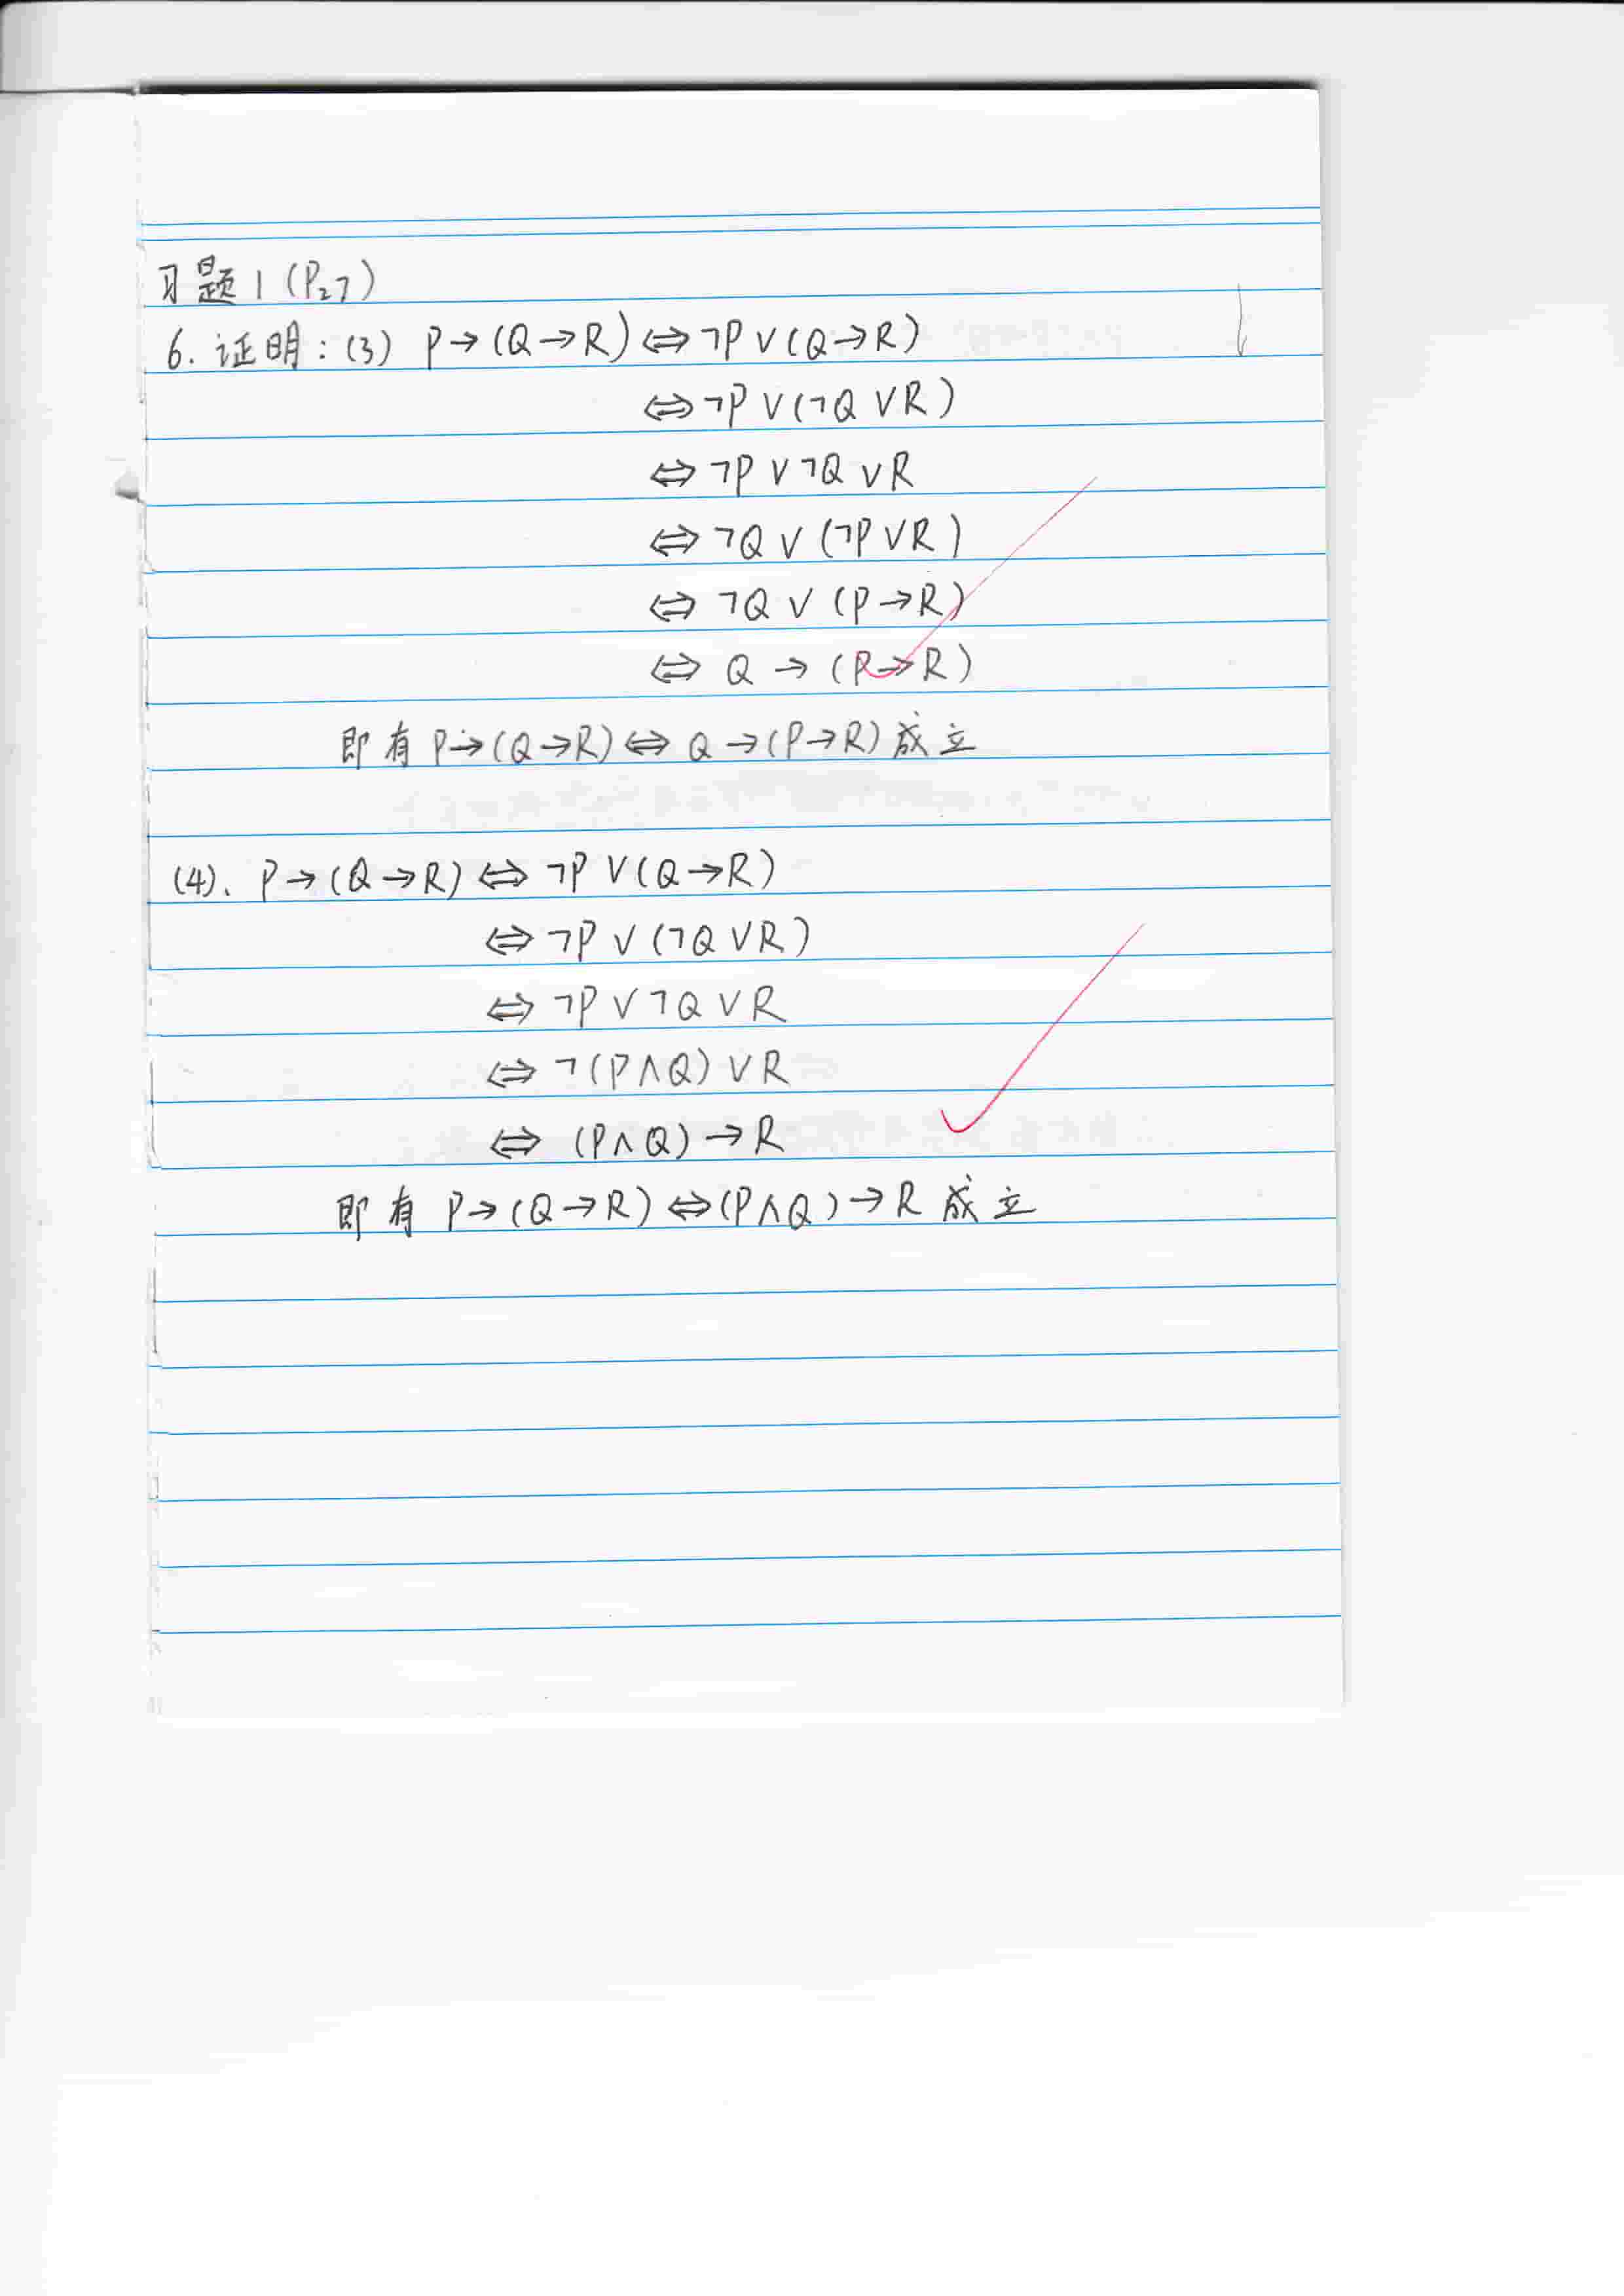 习题1(P₂₇)
6. 证明:(3) P→(Q→R)⇔¬P∨(Q→R)
⇔¬P∨(¬Q∨R)
⇔¬P∨¬Q∨R
⇔¬Q∨(¬P∨R)
⇔¬Q∨(P→R)
⇔Q→(P→R)
即有 P→(Q→R)⇔Q→(P→R)成立
(4). P→(Q→R)⇔¬P∨(Q→R)
⇔¬P∨(¬Q∨R)
⇔¬P∨¬Q∨R
⇔¬(P∧Q)∨R
⇔(P∧Q)→R
即有 P→(Q→R)⇔(P∧Q)→R 成立